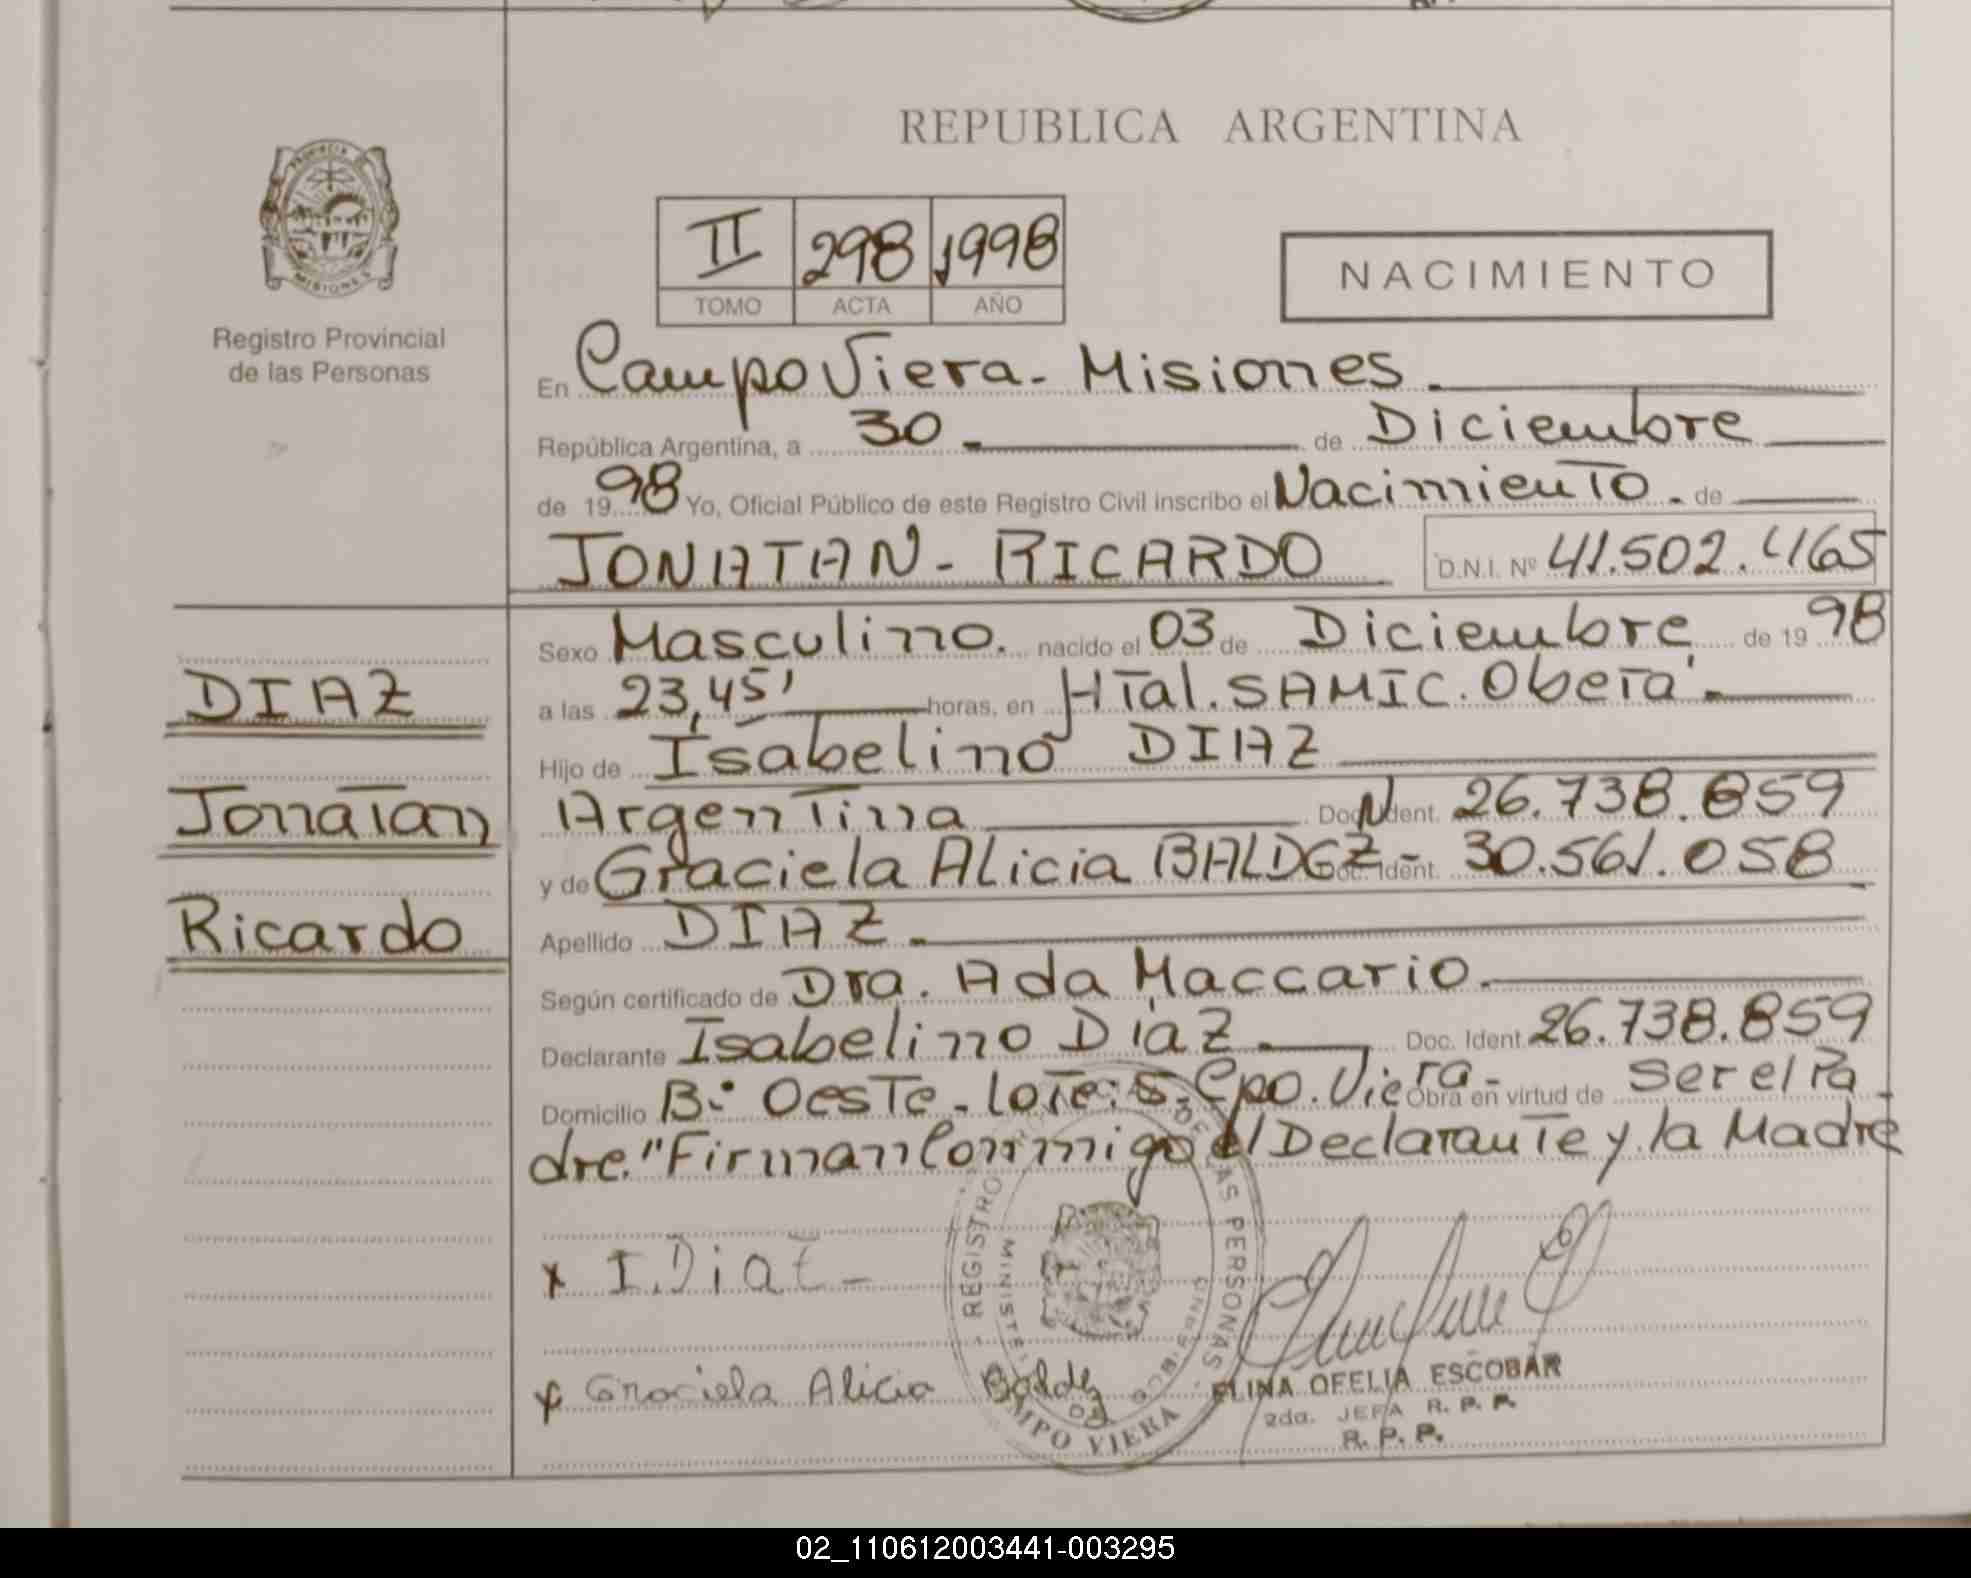 REPUBLICA ARGENTINA
PROVINCIA DE
MISIONES
Registro Provincial
de las Personas
II 298 1998
TOMO ACTA AÑO
NACIMIENTO
En Campo Viera - Misiones.
República Argentina, a 30 de Diciembre
de 1998 Yo, Oficial Público de este Registro Civil inscribo el Nacimiento. de
JONATAN - RICARDO D.N.I. Nº 41.502.465
DIAZ
Jonatan
Ricardo
Sexo Masculino. nacido el 03 de Diciembre de 1998
a las 23,45' horas, en HTal. SAMIC. Obera'.
Hijo de Isabelino DIAZ
Argentina Doc. Ident. 26.738.859
y de Graciela Alicia BALDEZ - Doc. Ident. 30.561.058
Apellido DIAZ.
Según certificado de Dra. Ada Maccario.
Declarante Isabelino DíaZ. Doc. Ident. 26.738.859
Domicilio B: Oeste - lote: 5. Cpo. Viera - Obra en virtud de ser el Pa-
dre." Firman Conmigo el Declarante y la Madre
x I. Diaz -
x Graciela Alicia Baldez
REGISTRO DE LAS PERSONAS
CAMPO VIERA
ELINA OFELIA ESCOBAR
2da. JEFA R. P. P.
R. P. P.
02_110612003441-003295